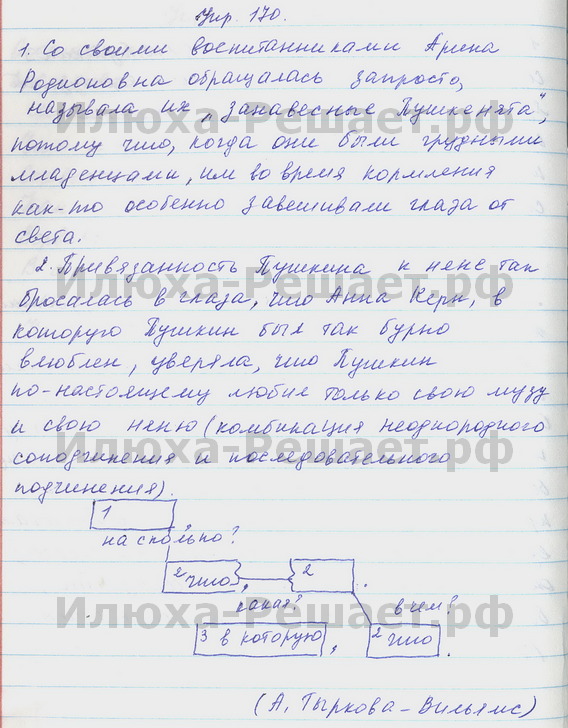 Упр. 170.
1. Со своими воспитанниками Арина
Родионовна обращалась запросто,
называла их „занавесные Пушкенята“,
потому что, когда они были грудными
младенцами, им во время кормления
как-то особенно завешивали глаза от
света.
2. Привязанность Пушкина к няне так
бросалась в глаза, что Анна Керн, в
которую Пушкин был так бурно
влюблен, уверяла, что Пушкин
по-настоящему любил только свою музу
и свою няню (комбинация неоднородного
соподчинения и последовательного
подчинения).
1 ,
на сколько?
2 что , 2 .
какая? в чем?
3 в которую , 2 что .
(А. Тыркова-Вильямс)
Илюха-Решает.рф
Илюха-Решает.рф
Илюха-Решает.рф
Илюха-Решает.рф